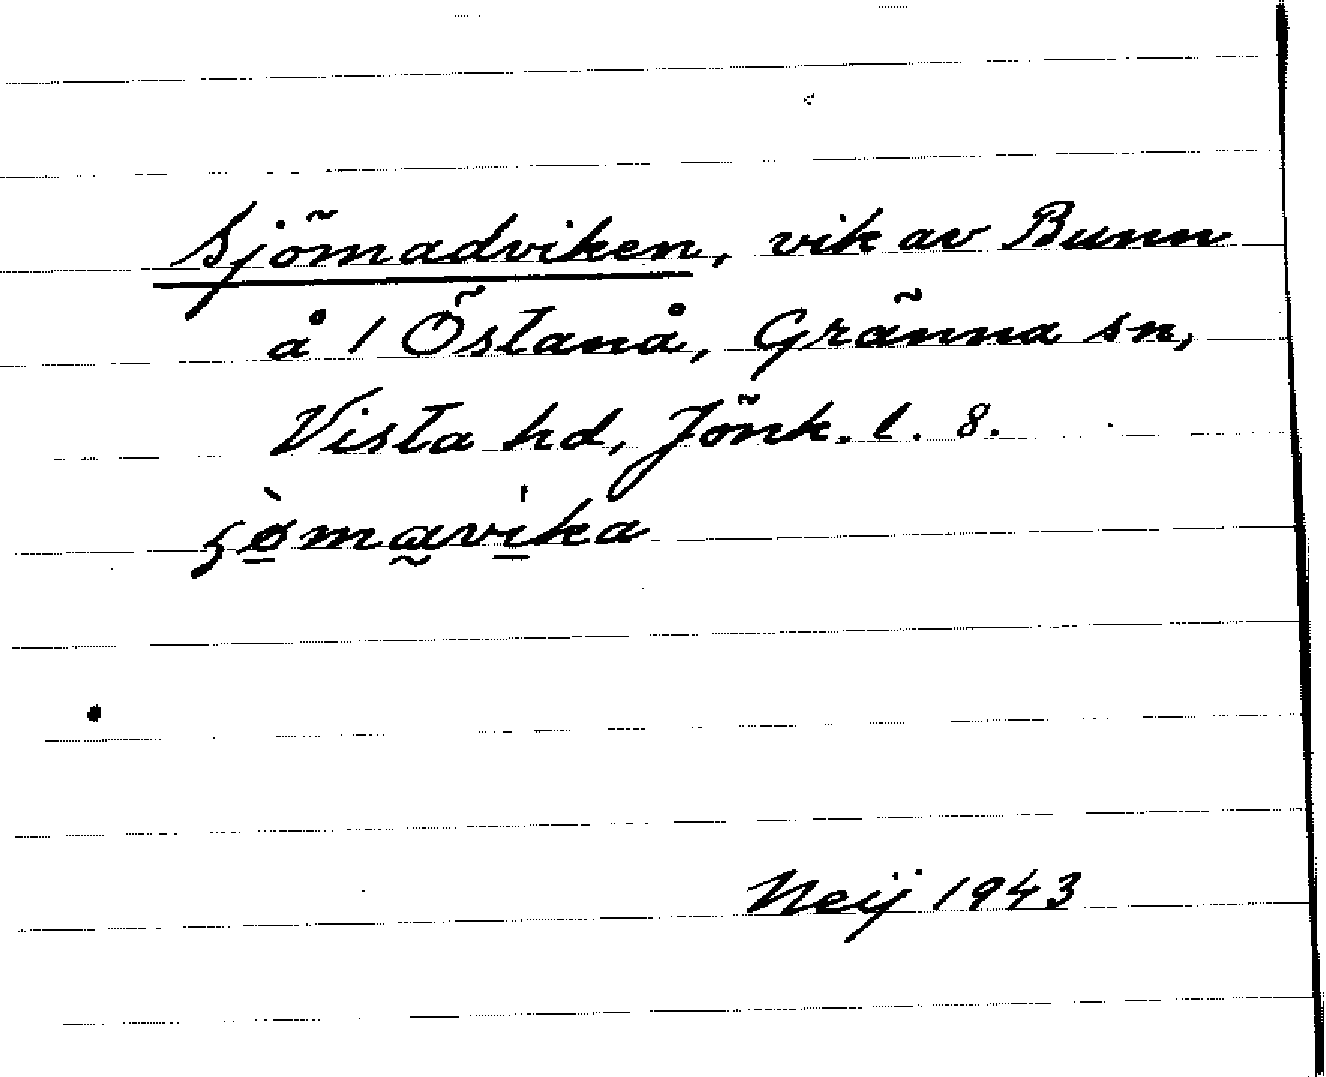 Sjömadviken, vik av Bunn
å 1 Östanå, Gränna sn,
Vista hd, Jönk. l. 8.
ʂø̱̀ma̰vi̱ka
Neij 1943